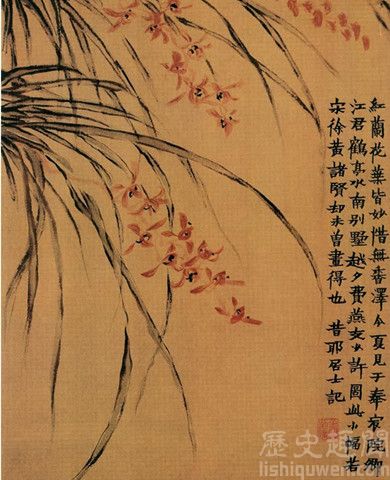 紅蘭花葉皆妙惜無香澤今夏見于奉宸院卿
江君鶴亭水南別墅越夕費燕支少許圖此小幅若
宋徐黃諸賢却未曾畫得也 昔耶居士記
歷史趣聞
lishiquwen.com